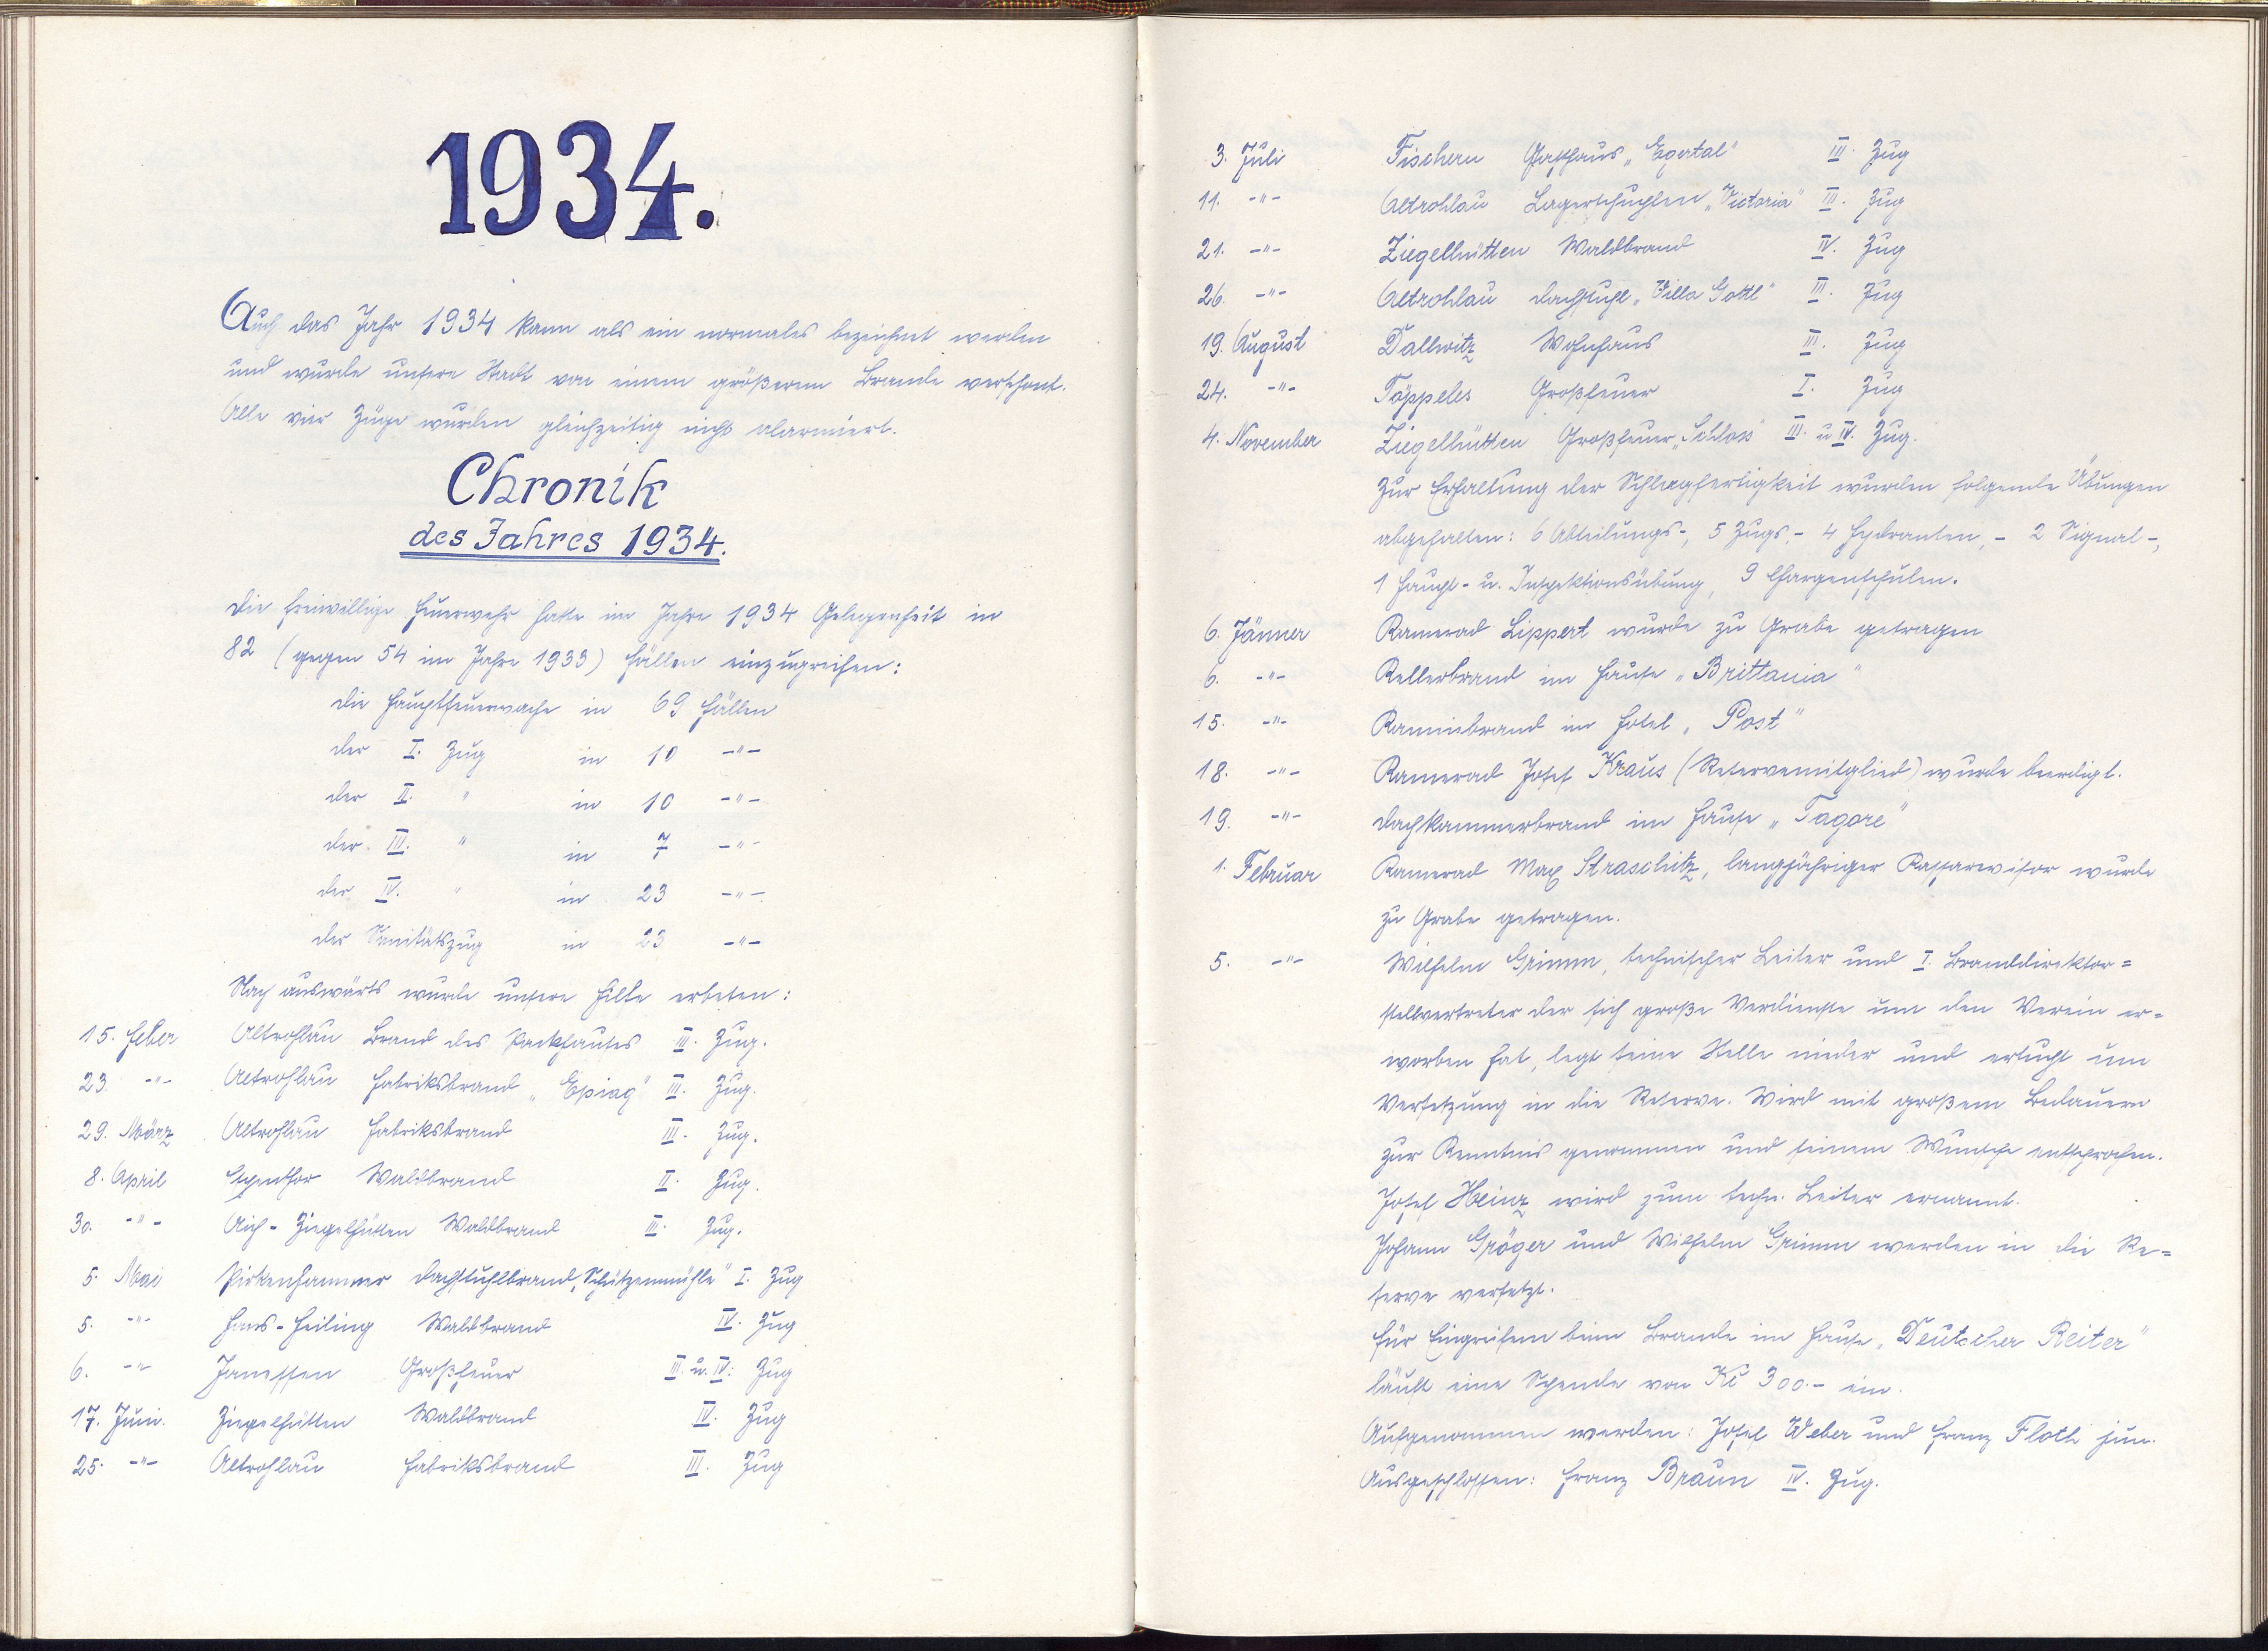 1934.
Auch das Jahr 1934 kann als ein normales bezeichnet werden
und wurde unsere Stadt von einem größeren Brande verschont.
Alle vier Züge wurden gleichzeitig nicht alarmiert.
Chronik
des Jahres 1934.
Die freiwillige Feuerwehr hatte im Jahre 1934 Gelegenheit in
82 (gegen 54 im Jahre 1933) Fällen einzugreifen:
die Hauptfeuerwache in 69 Fällen
der I. Zug in 10 -"-
der II. " in 10 -"-
der III. " in 7 -"-
der IV. " in 23 -"-
der Sanitätszug in 23 -"-
Nach auswärts wurde unsere Hilfe erbeten:
15. Feber Altrohlau Brand des Packhauses III. Zug.
23. -"- Altrohlau Fabriksbrand „Epiag" III. Zug.
29. März Altrohlau Fabriksbrand III. Zug.
8. April Espenthor Waldbrand II. Zug.
30. -"- Aich-Ziegelhütten Waldbrand III. Zug.
5. Mai Pirkenhammer Dachstuhlbrand „Schützenmühle" I. Zug
5. -"- Hans-Heiling Waldbrand IV. Zug
6. -"- Janessen Großfeuer III. u. IV. Zug
17. Juni. Ziegelhütten Waldbrand IV. Zug
25. -"- Altrohlau Fabriksbrand III. Zug
3. Juli Fischern Gasthaus „Egertal" III. Zug
11. -"- Altrohlau Lagerschuppen „Victoria" III. Zug
21. -"- Ziegelhütten Waldbrand IV. Zug
26. -"- Altrohlau Dachstuhl „Villa Gottl" III. Zug
19. August Dallwitz Wohnhaus III. Zug
24. -"- Töppeles Großfeuer I. Zug
4. November Ziegelhütten Großfeuer „Schloss" III. u IV. Zug.
Zur Erhaltung der Schlagfertigkeit wurden folgende Übungen
abgehalten: 6 Abteilungs-, 5 Zugs,- 4 Hydranten,- 2 Signal-,
1 Haupt- u. Inspektionsübung, 9 Chargenschulen.
6. Jänner Kamerad Lippert wurde zu Grabe getragen
6. -"- Kellerbrand im Hause „Brittania"
15. -"- Kaminbrand im Hotel „Post"
18. -"- Kamerad Josef Kraus (Reservemitglied) wurde beerdigt.
19. -"- Dachkammerbrand im Hause „Tagore"
1. Februar Kamerad Max Straschitz, langjähriger Kassarevisor wurde
zu Grabe getragen.
5. -"- Wilhelm Grimm, technischer Leiter und I. Branddirektor=
stellvertreter der sich große Verdienste um den Verein er=
worben hat, legt seine Stelle nieder und ersucht um
Versetzung in die Reserve. Wird mit großem Bedauern
zur Kenntnis genommen und seinem Wunsche entsprochen.
Josef Heinz wird zum techn. Leiter ernannt.
Johann Gröger und Wilhelm Grimm werden in die Re=
serve versetzt.
Für Eingreifen beim Brande im Hause „Deutscher Reiter"
läuft eine Spende von Kč 300.- ein.
Aufgenommen werden: Josef Weber und Franz Floth jun.
Ausgeschlossen: Franz Braun IV. Zug.